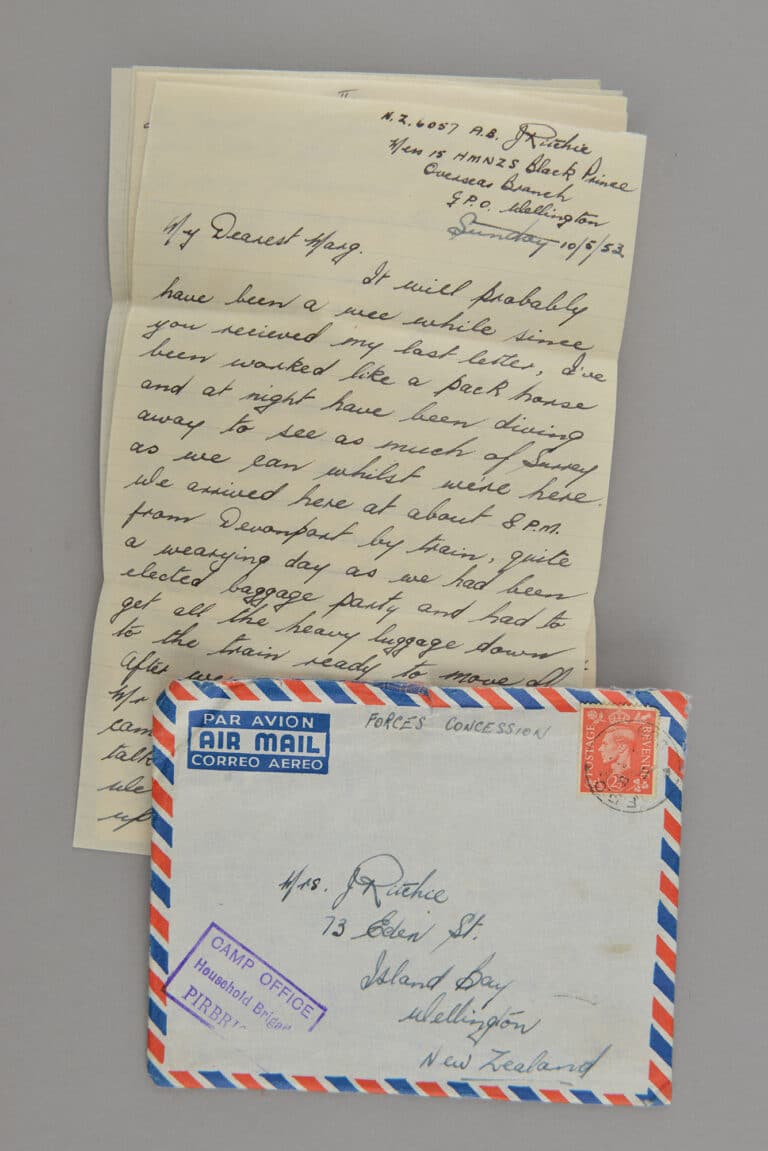 II
N.Z. 6057 A.B. J Ritchie
Mess 15 HMNZS Black Prince
Overseas Branch
G.P.O. Wellington
Sunday 10/5/53
My Dearest Marg.
It will probably
have been a wee while since
you recieved my last letter, I've
been worked like a pack horse
and at night have been diving
away to see as much of Surrey
as we can whilst we're here.
We arrived here at about 8 P.M.
from Devonport by train, quite
a wearying day as we had been
elected baggage party and had to
get all the heavy luggage down
to the train ready to move off
After we
Mr
cam
talk
we
up
PAR AVION
AIR MAIL
CORREO AEREO
FORCES CONCESSION
POSTAGE
REVENUE
Mrs. J Ritchie
73 Eden St.
Island Bay
Wellington
New Zealand
CAMP OFFICE
Household Brigad
PIRBR